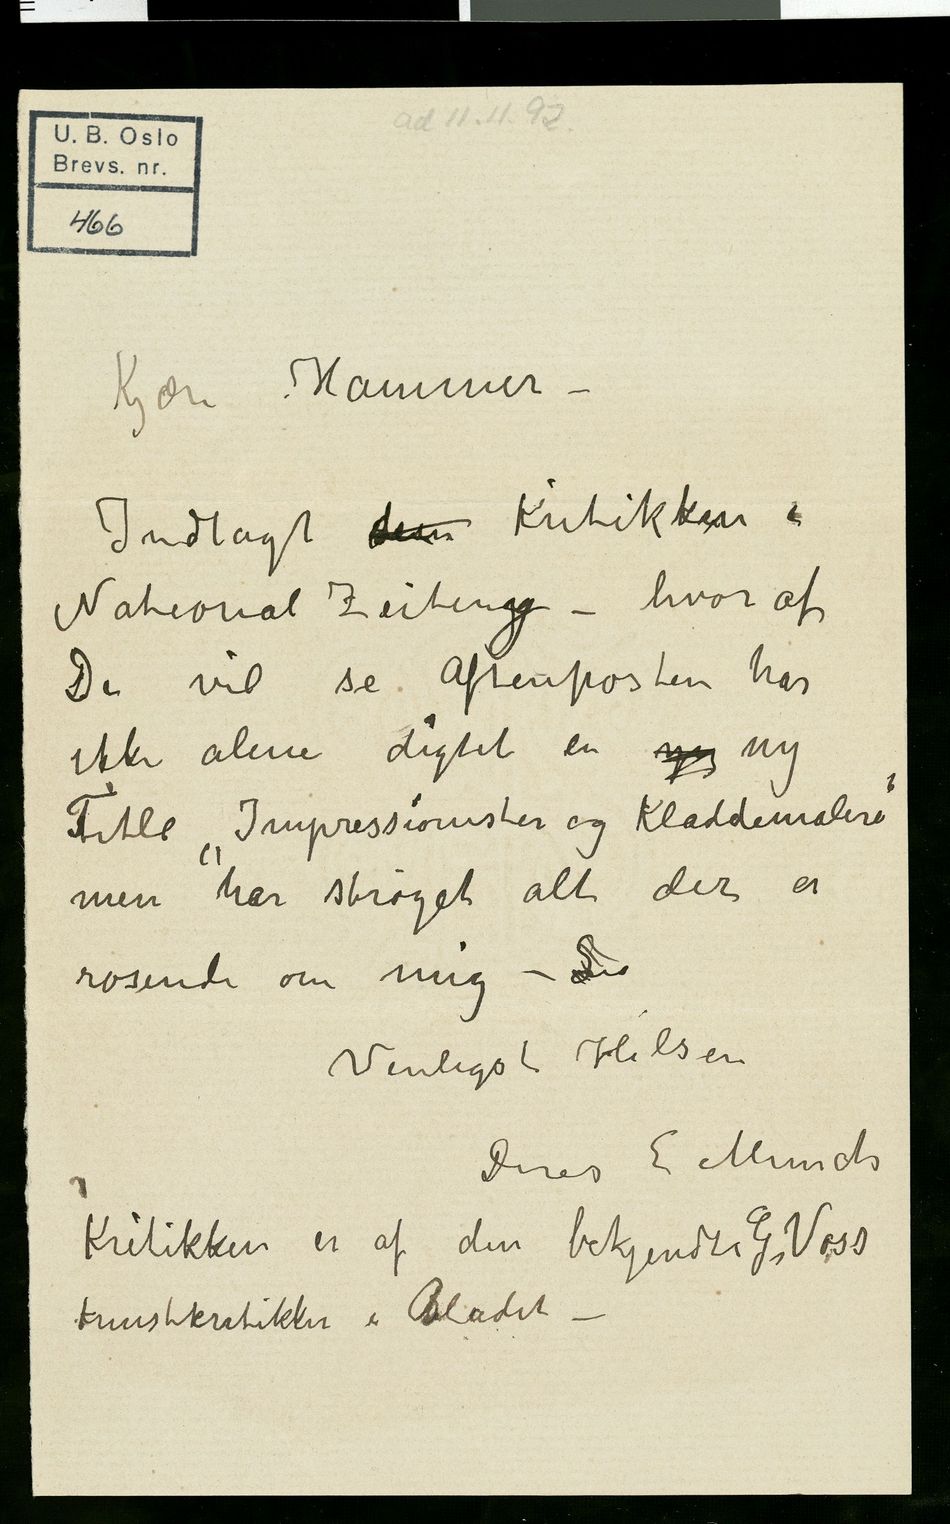 ad 11.11.92.
U. B. Oslo
Brevs. nr.
466
Kjære Hammer –
Indlagt den Kritikken i
National Zeitung – hvor af
De vil se Aftenposten har
ikke alene digtet en ny
Titel „Impressionister og Kladdemalere"
men har strøget alt der er
rosende om mig –
Venligst Hilsen
Deres E Munch
Kritikken er af den bekjendte G. Voss
kunstkritikker i Bladet –